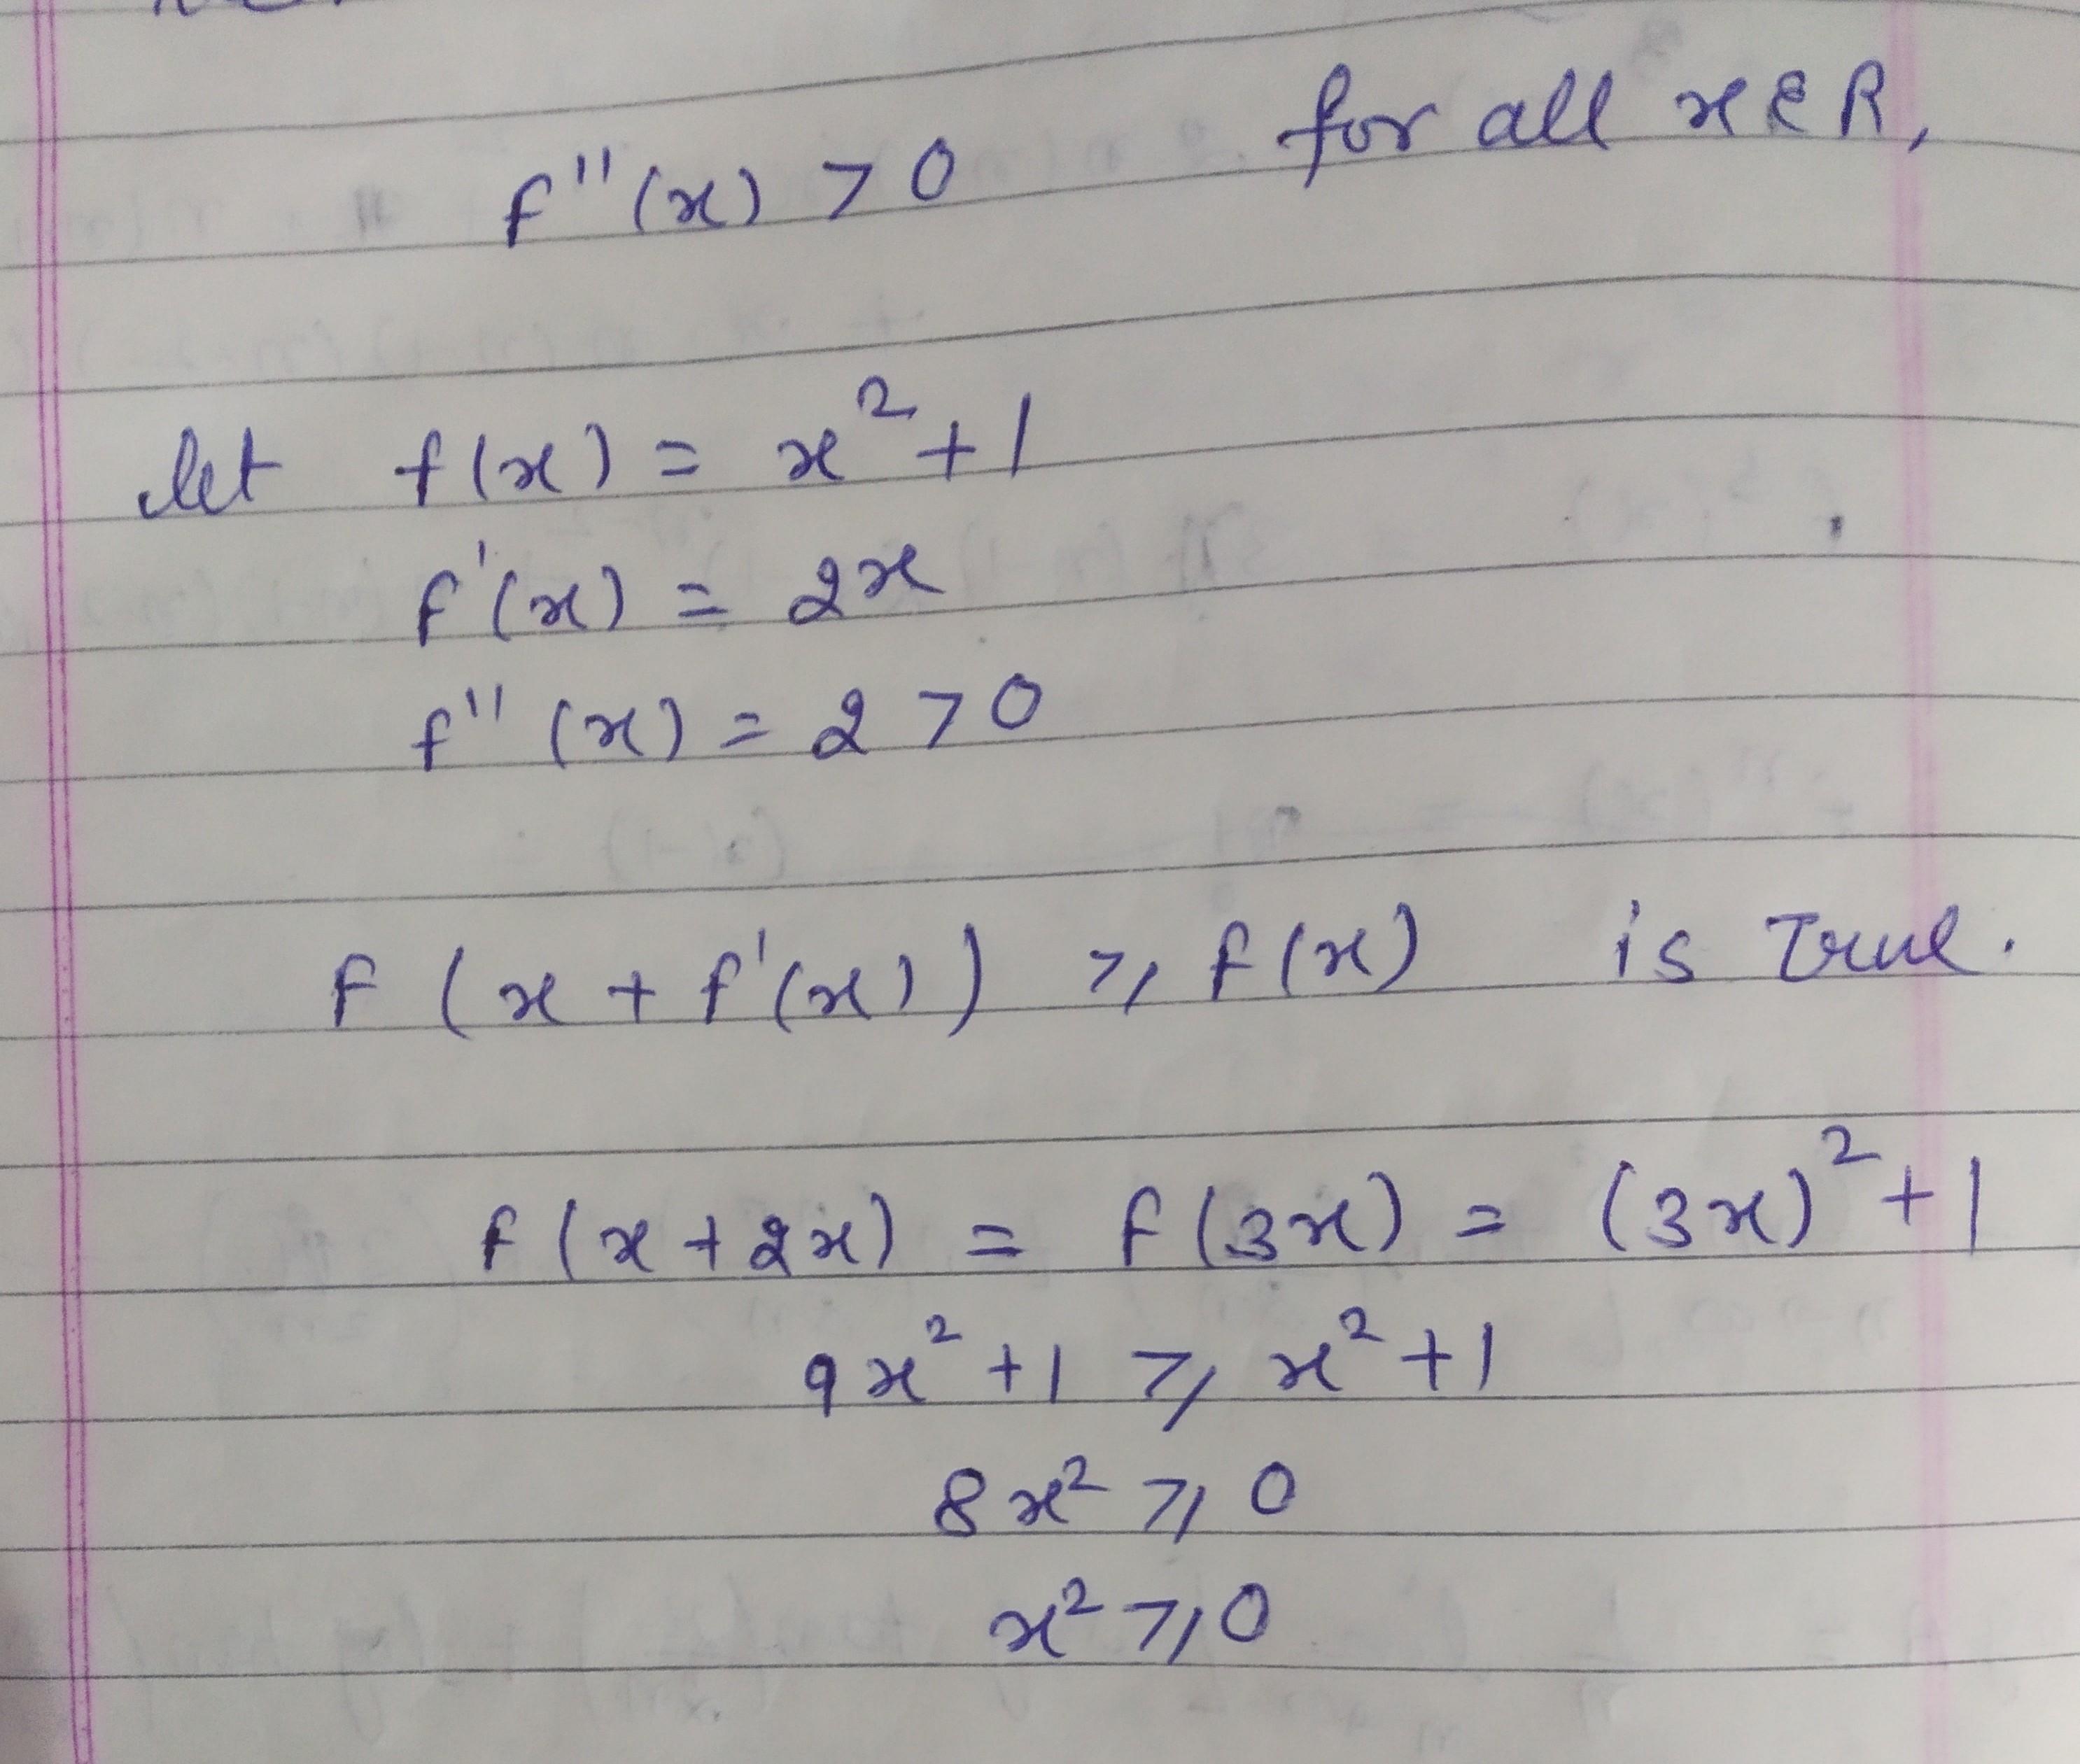 f''(x) > 0 for all x ∈ R,
let f(x) = x² + 1
f'(x) = 2x
f''(x) = 2 > 0
f(x + f'(x)) ≥ f(x) is True.
f(x + 2x) = f(3x) = (3x)² + 1
9x² + 1 ≥ x² + 1
8x² ≥ 0
x² ≥ 0